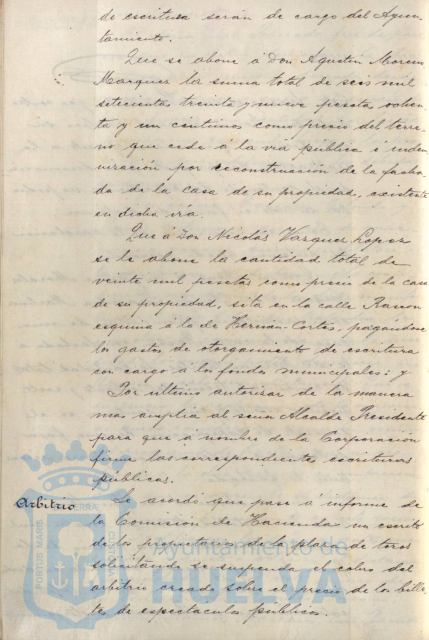 de escritura serán de cargo del Ayun-
tamiento.
Que se abone á Don Agustin Moreno
Marquez la suma total de seis mil
setecientas treinta y nueve pesetas ochen-
ta y un centimos como precio del terre-
no que cede á la via pública é indem-
nización por reconstrucción de la facha-
da de la casa de su propiedad, existente
en dicha via.
Que á Don Nicolás Vazquez Lopez
se le abone la cantidad total de
veinte mil pesetas como precio de la casa
de su propiedad, sita en la calle Rascon
esquina á la de Hernán-Cortés, pagándose
los gastos de otorgamiento de escritura
con cargo á los fondos municipales: y
Por ultimo autorizar de la manera
mas amplia al señor Alcalde Presidente
para que á nombre de la Corporación
firme las correspondientes escrituras
públicas.
Arbitrio
Se acordó que pase á informe de
la Comisión de Hacienda un escrito
de los propietarios de la plaza de toros
solicitando se suspenda el cobro del
arbitrio creado sobre el precio de los bille-
tes de espectaculos públicos.
PORTUS MARIS
Ayuntamiento de
HUELVA